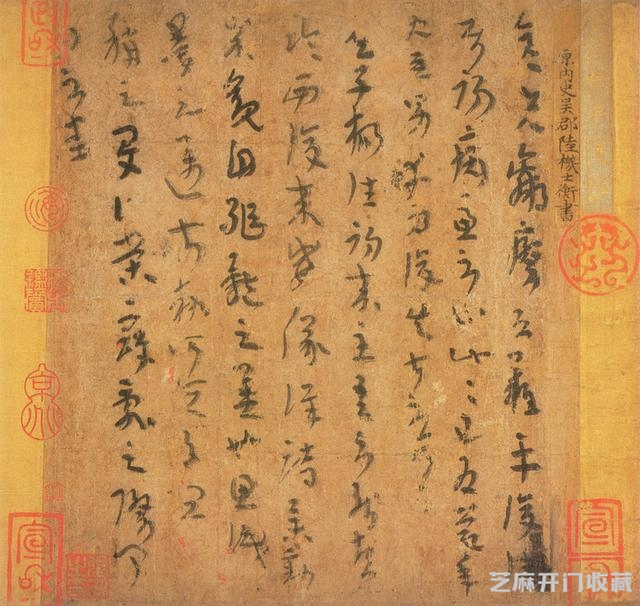 原內史吳郡陸機士衡書
彦先羸瘵恐難平復往
屬初病慮不止此此已為慶承
使唯男幸為復失前憂耳
吳子楊往初來主吾不能盡
臨西復來威儀詳跱舉動
成觀自軀體之美也思識
量之邁前執所恒有宜
稱之夏伯榮寇亂之際聞
問不悉
宣和
芝麻开门收藏